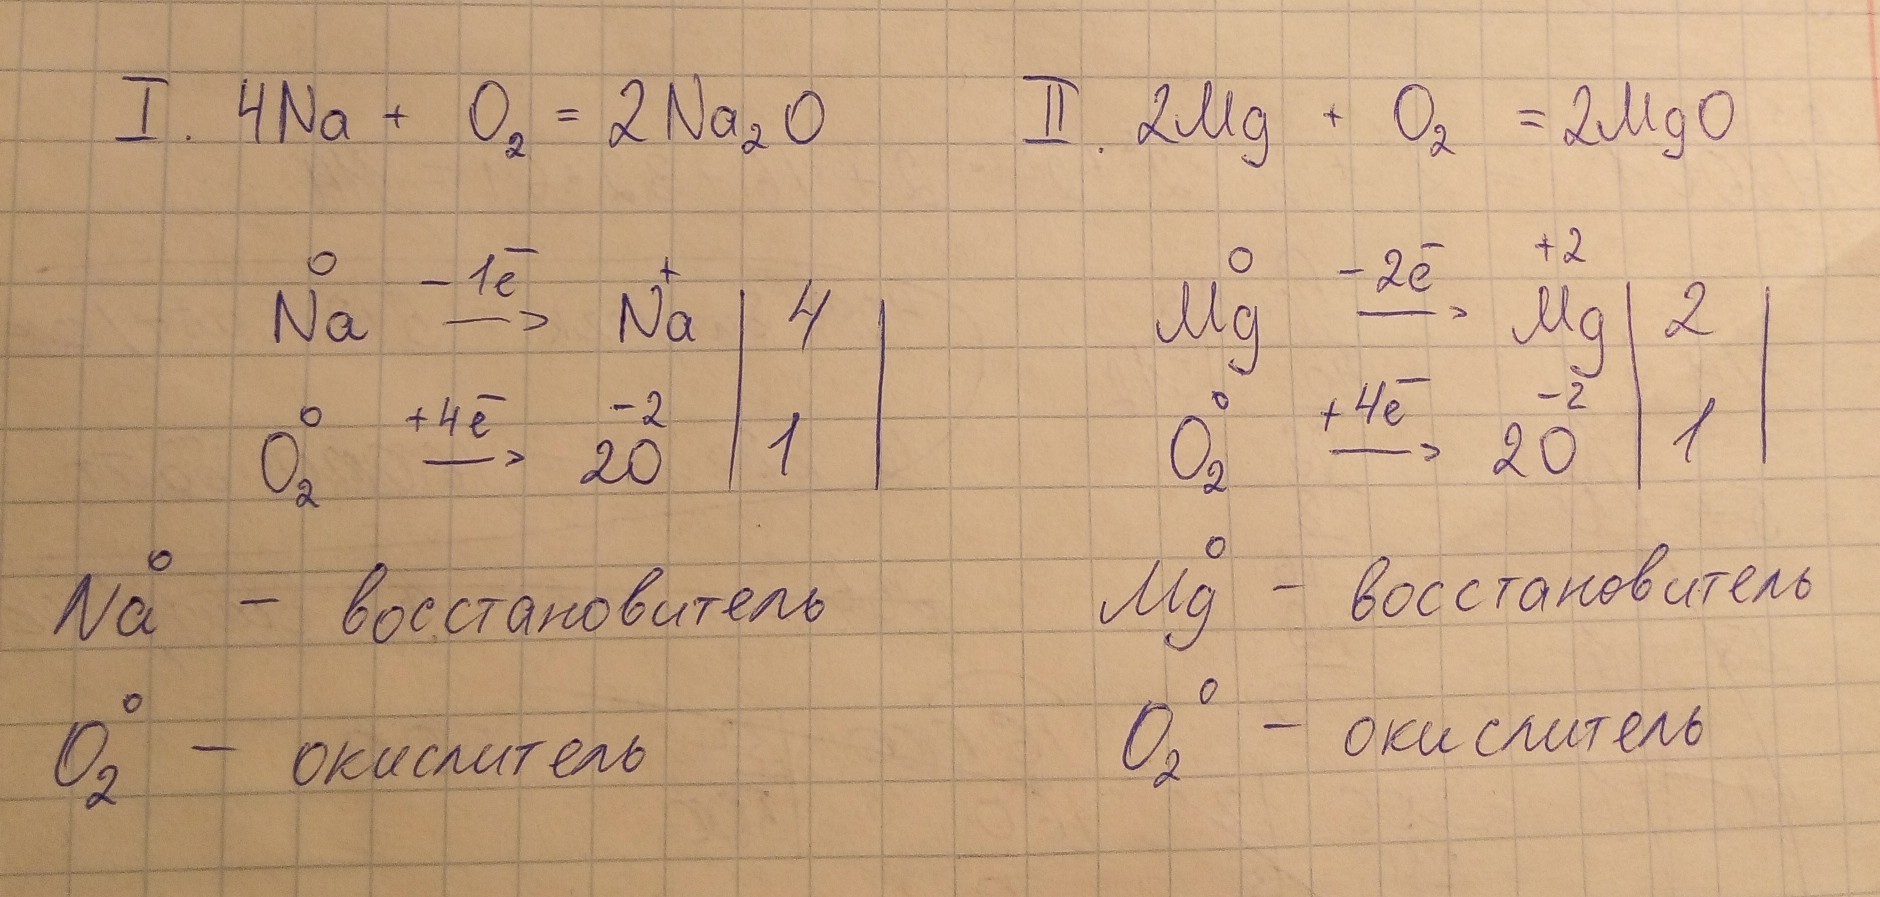 I. 4Na + O₂ = 2Na₂O
Na⁰ −1e̅ → Na⁺ | 4 |
O₂⁰ +4e̅ → 2O⁻² | 1 |
Na⁰ – восстановитель
O₂⁰ – окислитель
II. 2Mg + O₂ = 2MgO
Mg⁰ −2e̅ → Mg⁺² | 2 |
O₂⁰ +4e̅ → 2O⁻² | 1 |
Mg⁰ – восстановитель
O₂⁰ – окислитель